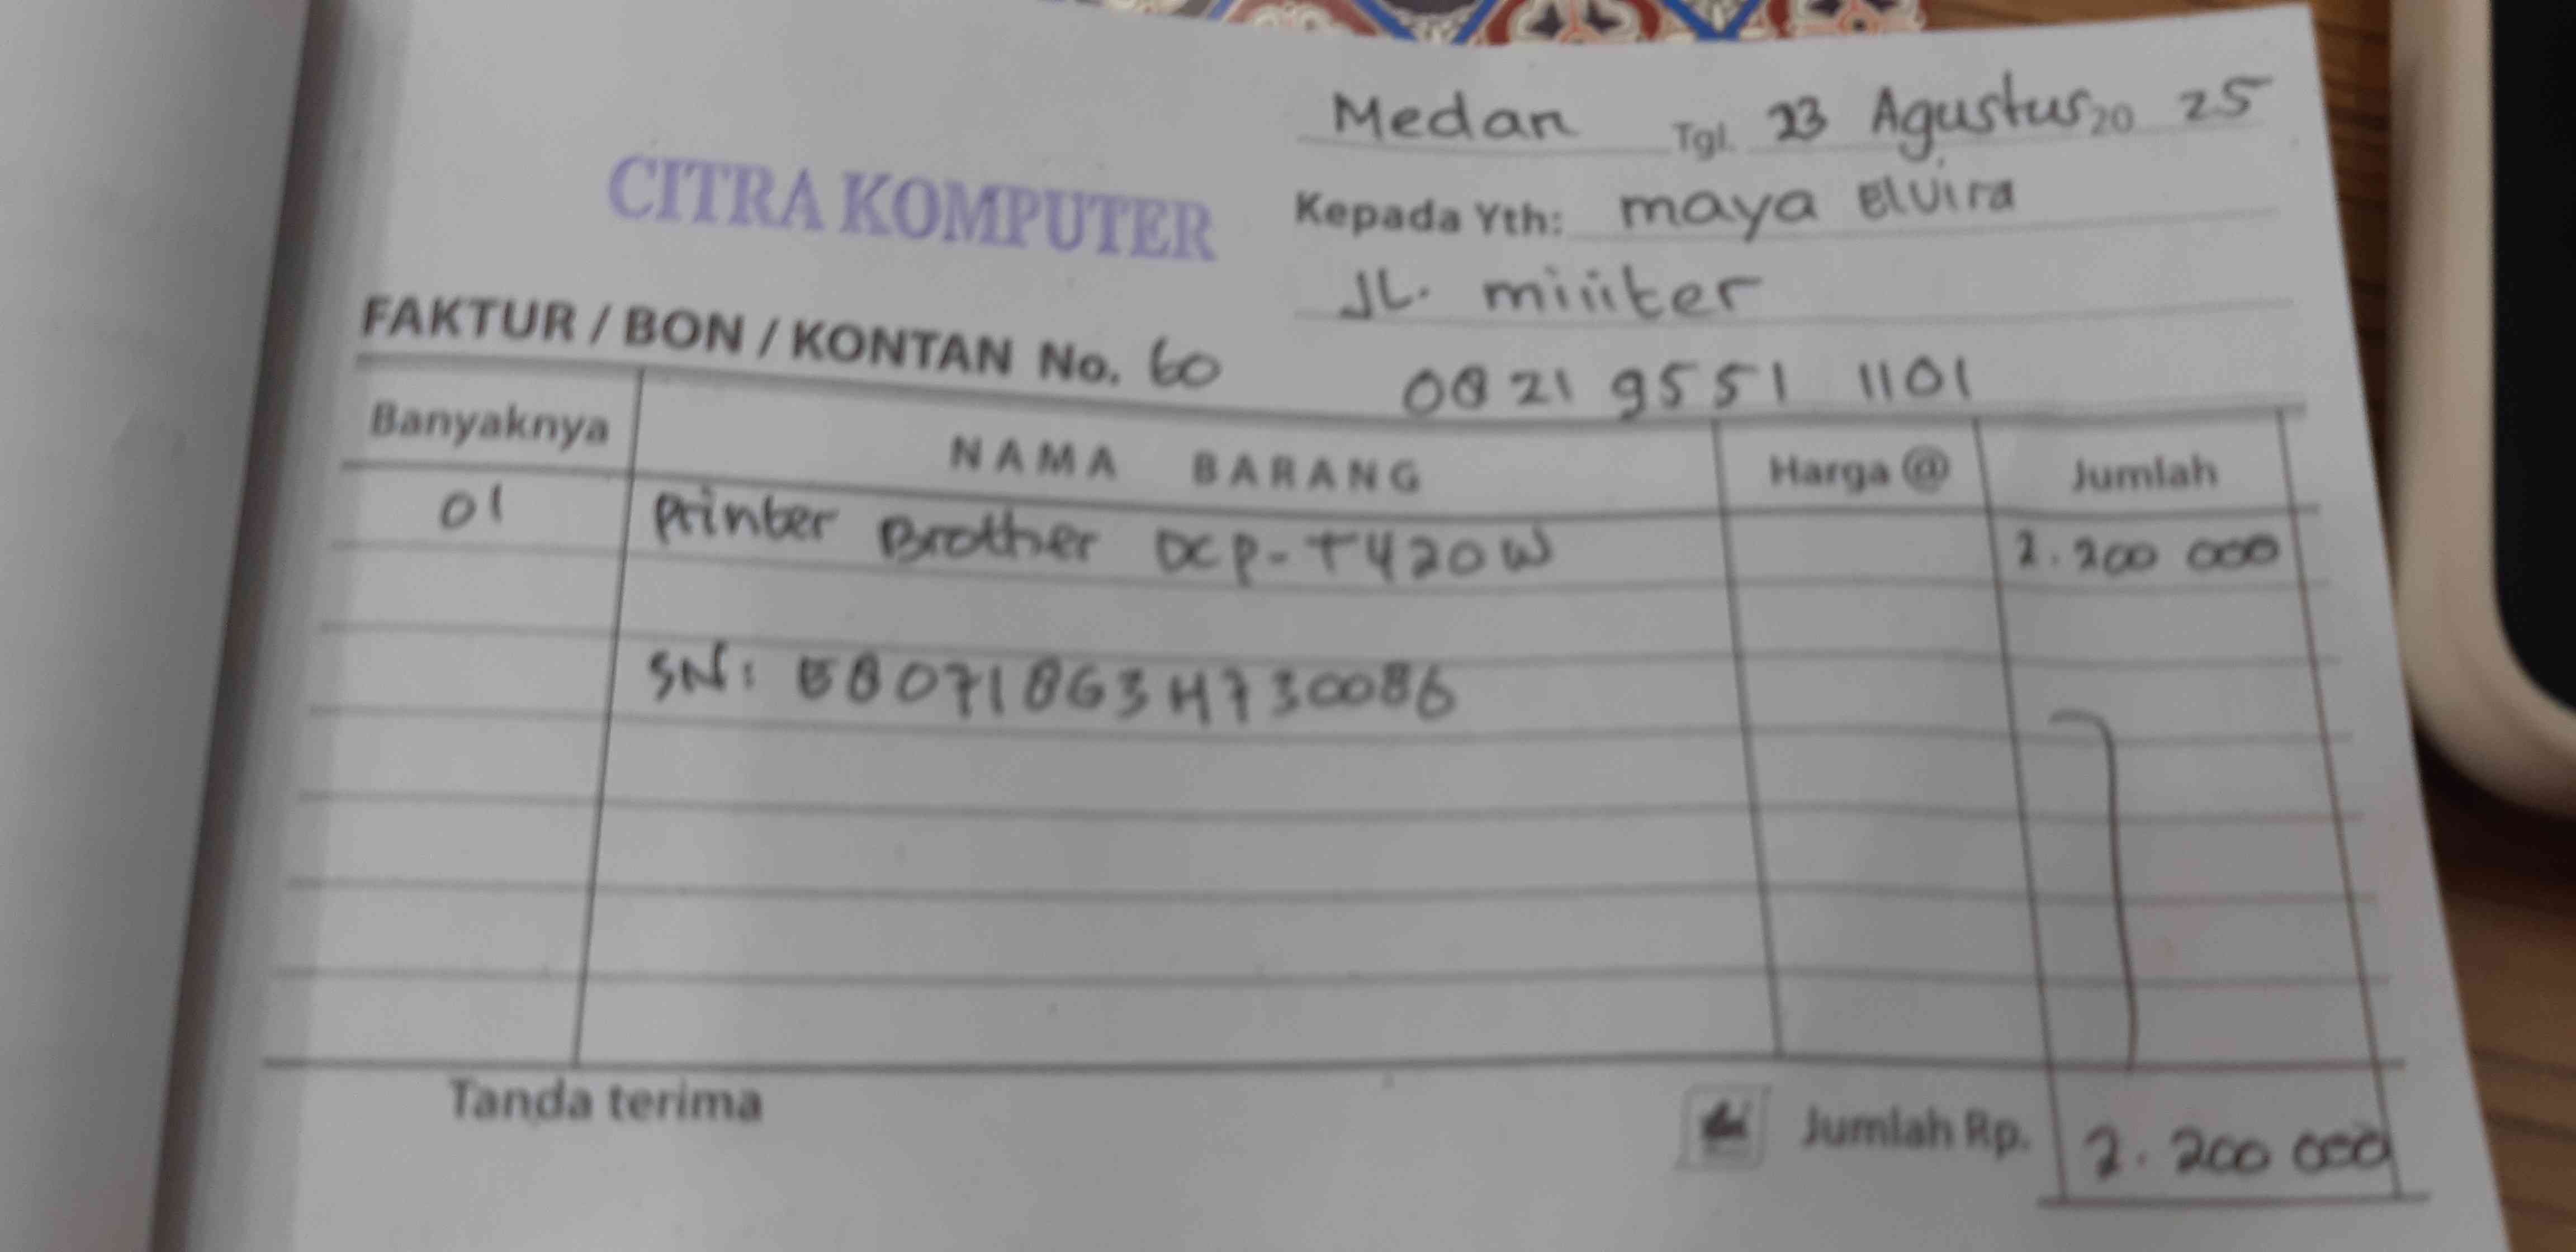 Medan Tgl. 23 Agustus 20 25
CITRA KOMPUTER
Kepada Yth: maya Elvira
JL. miiiter
FAKTUR / BON / KONTAN No. 60
0821 9551 1101
Banyaknya NAMA BARANG Harga @ Jumlah
01 Printer Brother DCP-T420W 2.200 000
SN: E80718G3H730086
Tanda terima
Jumlah Rp. 2.200 000